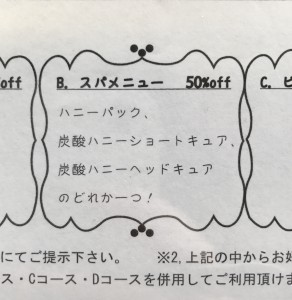 off
B. スパメニュー 50%off
C. ビ
ハニーパック、
炭酸ハニーショートキュア、
炭酸ハニーヘッドキュア
のどれか一つ！
にてご提示下さい。 ※2,上記の中からお好
ス・Cコース・Dコースを併用してご利用頂けま